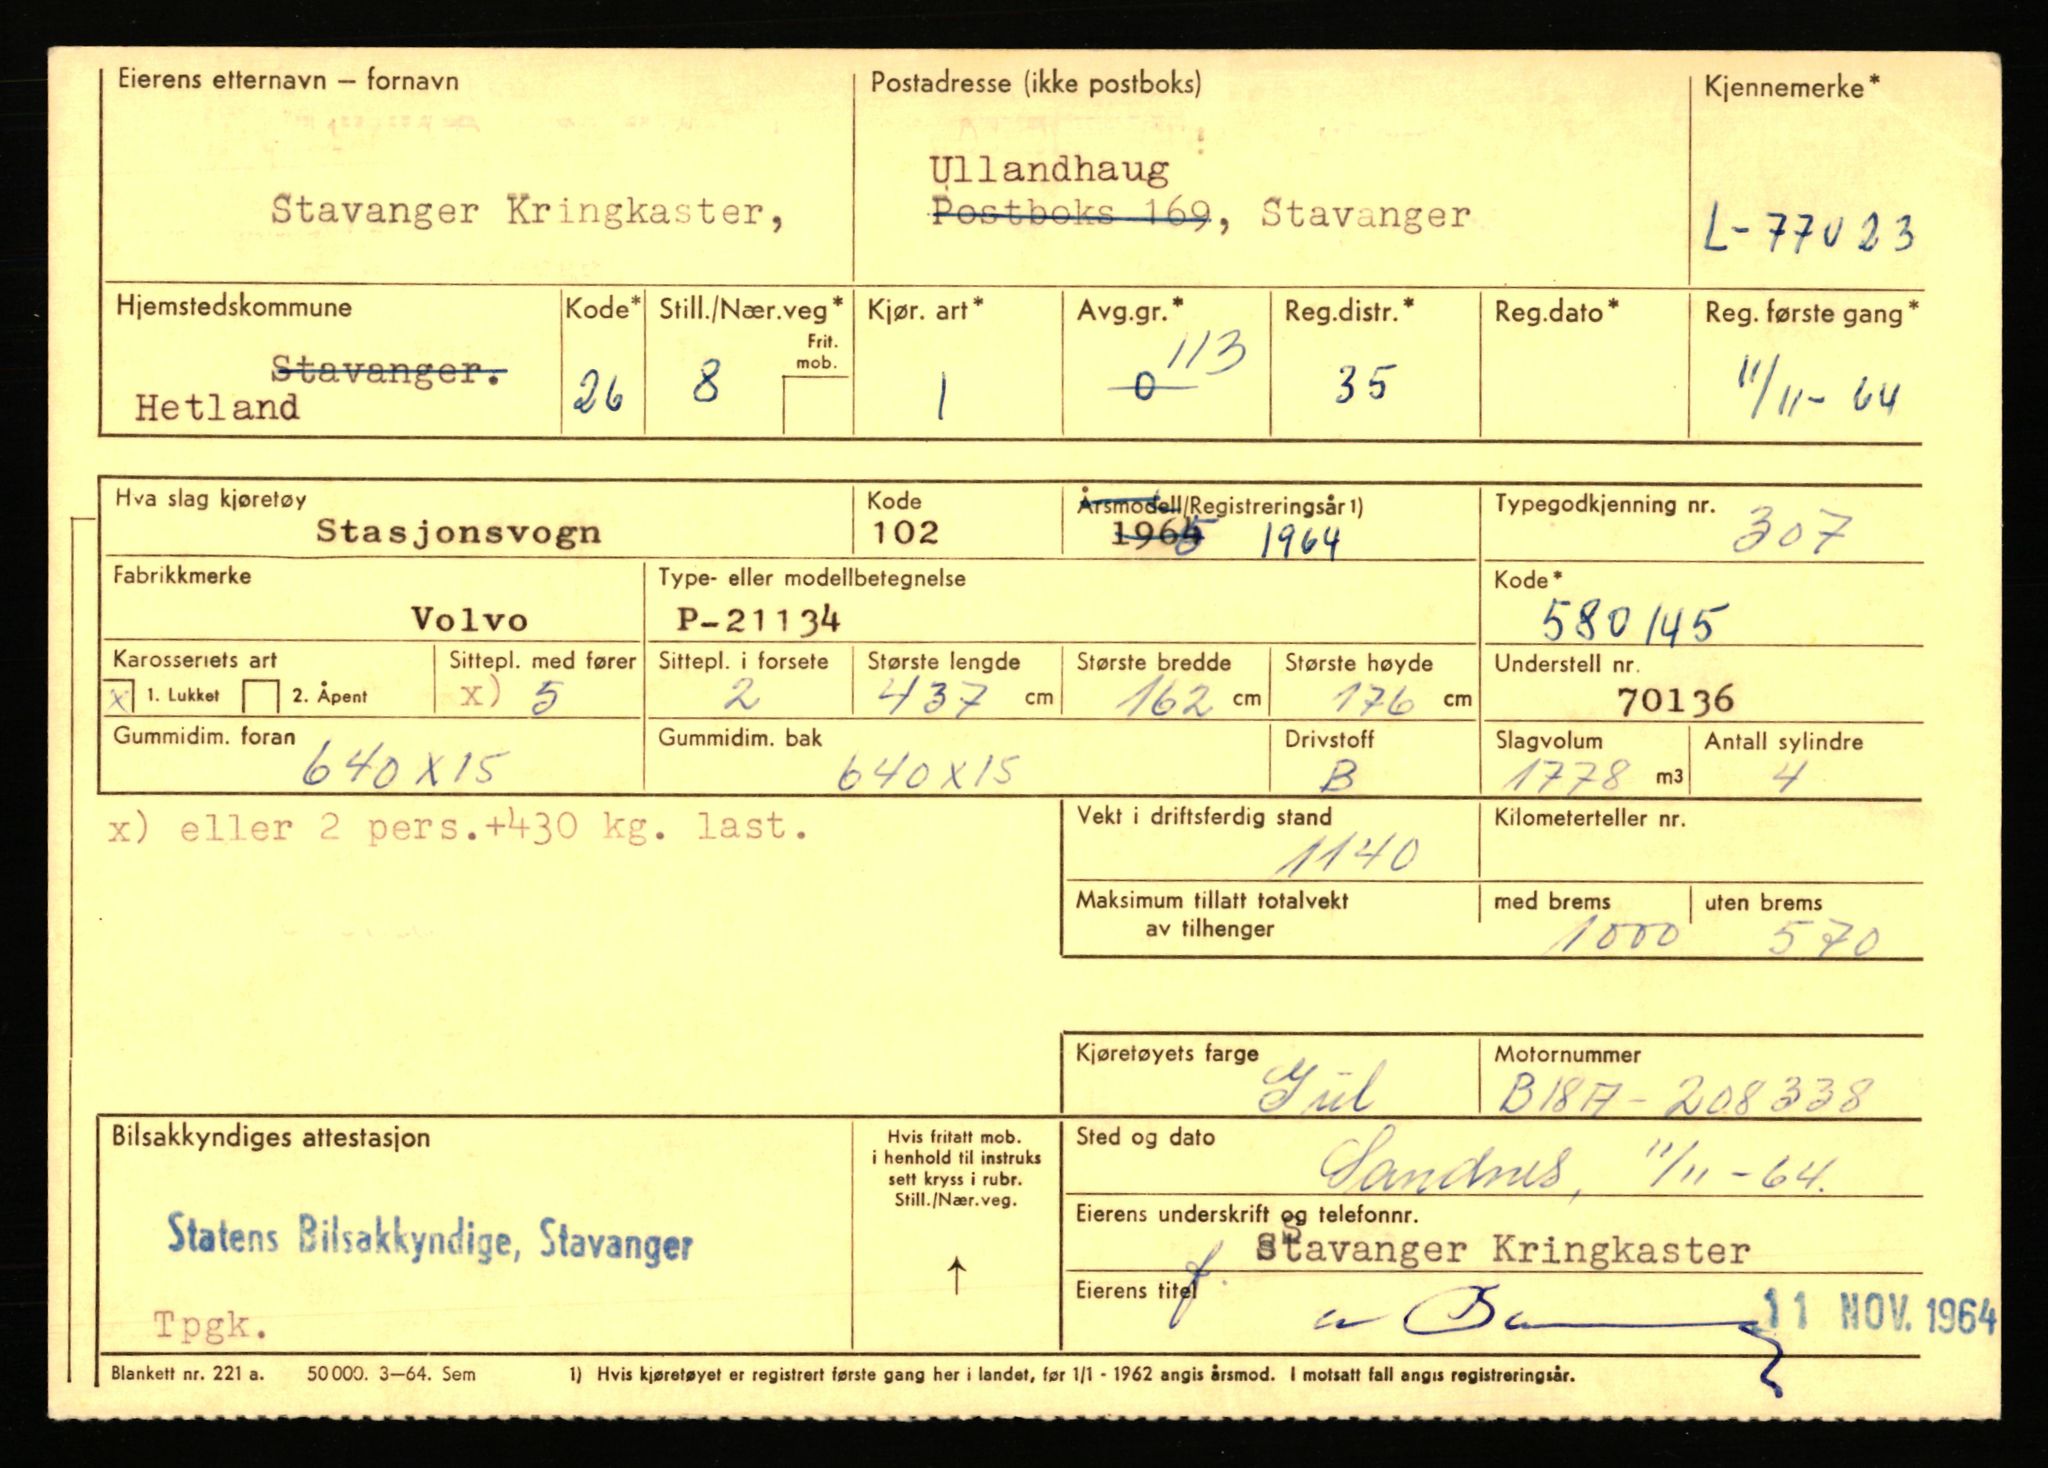 Eierens etternavn – fornavn
Postadresse (ikke postboks)
Kjennemerke*
Ullandhaug
Stavanger Kringkaster,
Postboks 169, Stavanger
L-77023
Hjemstedskommune
Kode*
Still./Nær.veg*
Kjør. art*
Avg.gr.*
Reg.distr.*
Reg.dato*
Reg. første gang*
Frit.
mob.
Stavanger.
Hetland
26
8
1
0
113
35
11/11-64
Hva slag kjøretøy
Kode
Årsmodell/Registreringsår 1)
Typegodkjenning nr.
Stasjonsvogn
102
1965
1964
307
Fabrikkmerke
Type- eller modellbetegnelse
Kode*
Volvo
P-21134
580145
Karosseriets art
Sittepl. med fører
Sittepl. i forsete
Største lengde
Største bredde
Største høyde
Understell nr.
x 1. Lukket
2. Åpent
x) 5
2
437 cm
162 cm
176 cm
70136
Gummidim. foran
Gummidim. bak
Drivstoff
Slagvolum
Antall sylindre
640 x 15
640 x 15
B
1778 m3
4
x) eller 2 pers.+430 kg. last.
Vekt i driftsferdig stand
Kilometerteller nr.
1140
Maksimum tillatt totalvekt
av tilhenger
med brems
uten brems
1000
570
Kjøretøyets farge
Motornummer
Gul
B18A - 208338
Bilsakkyndiges attestasjon
Hvis fritatt mob.
i henhold til instruks
sett kryss i rubr.
Still./Nær.veg.
↑
Sted og dato
Sandnes, 11/11-64.
Statens Bilsakkyndige, Stavanger
Tpgk.
Eierens underskrift og telefonnr.
f. Stavanger Kringkaster
Eierens titel
11 NOV. 1964
Blankett nr. 221 a. 50 000. 3–64. Sem
1) Hvis kjøretøyet er registrert første gang her i landet, før 1/1 - 1962 angis årsmod. I motsatt fall angis registreringsår.